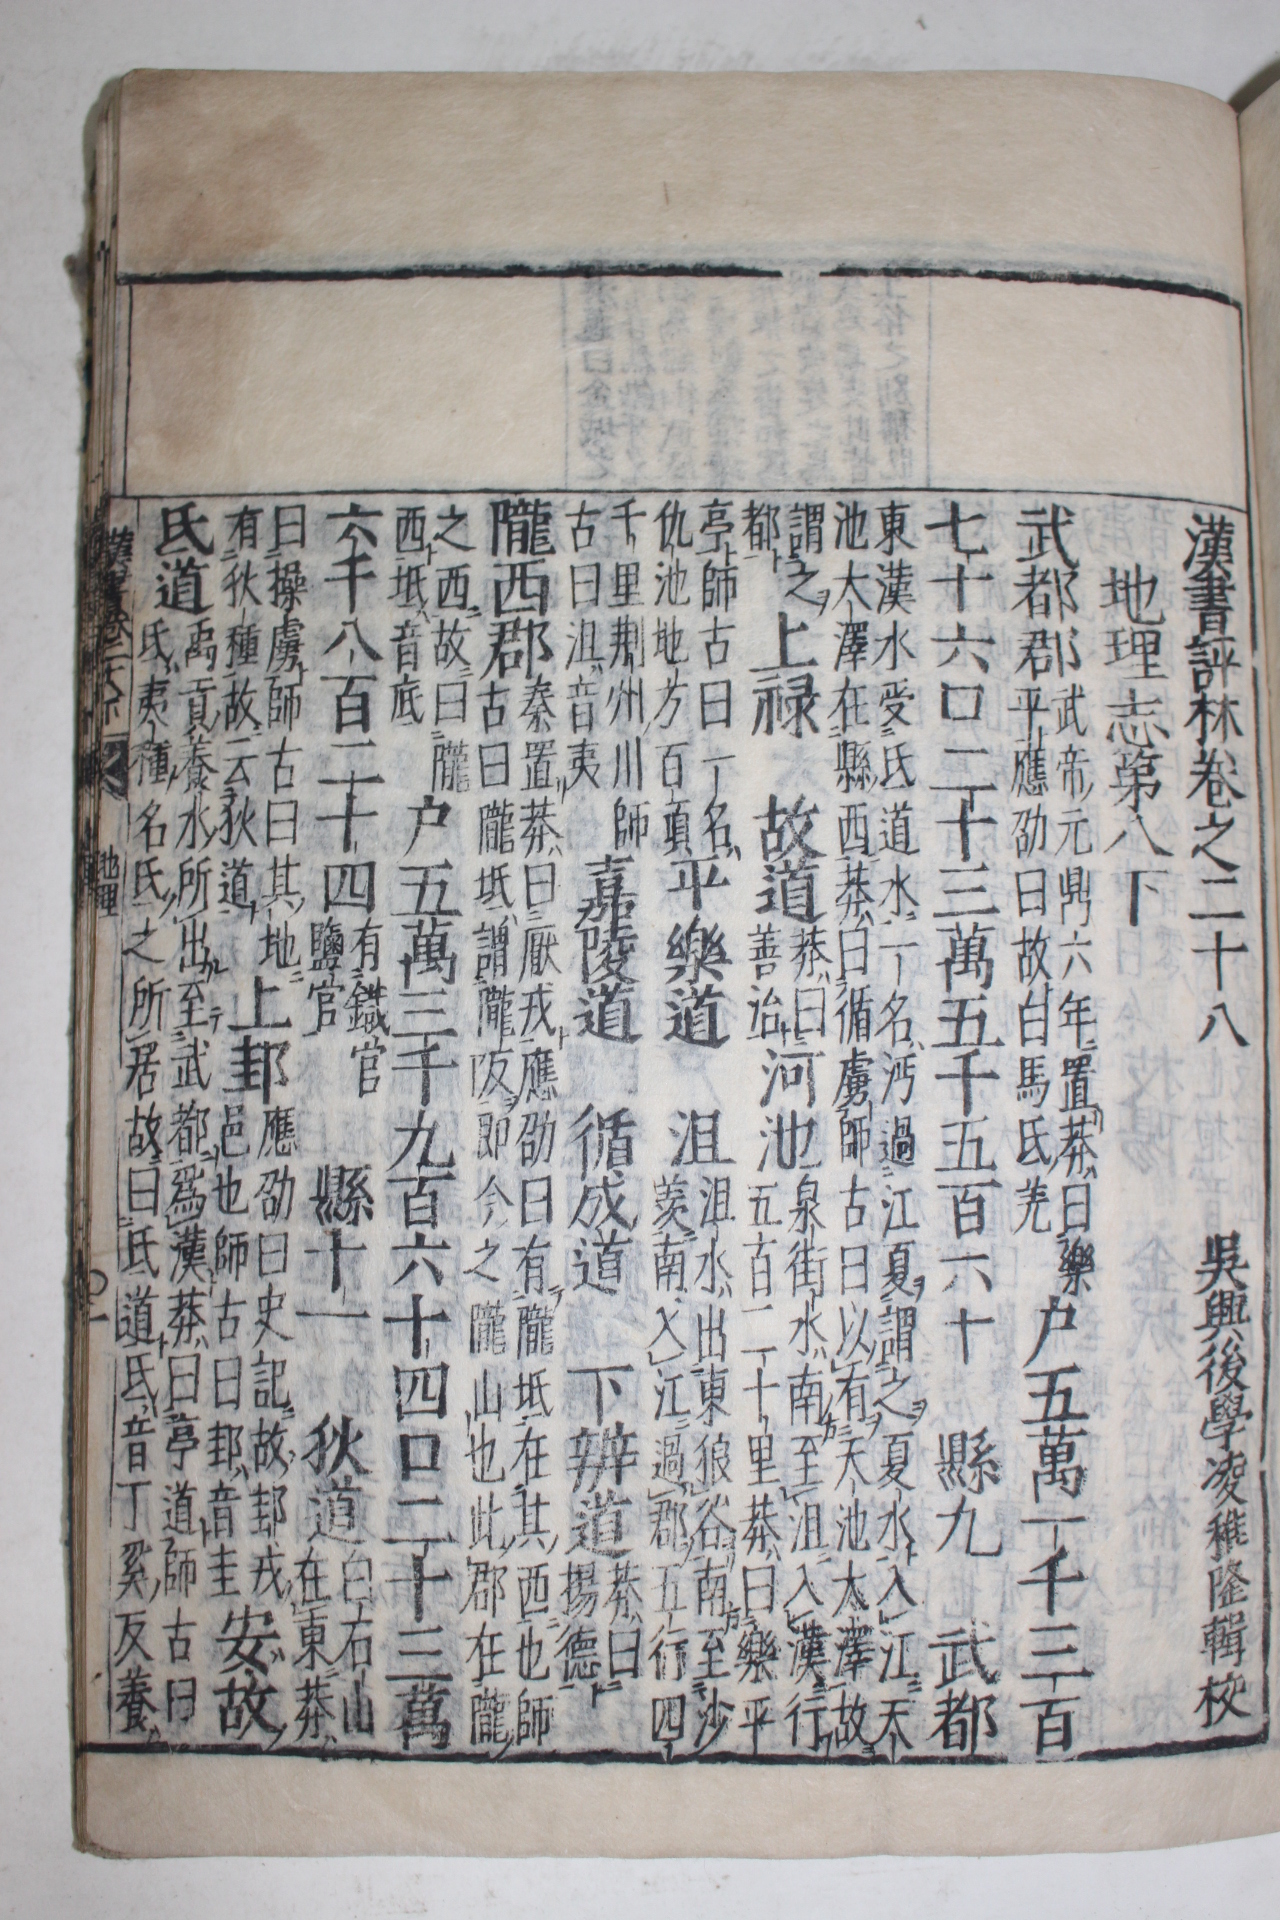 漢書評林卷之二十八
吳興後學凌稚隆輯校
地理志第八下
武都郡
武帝元鼎六年置莽曰樂
平應劭曰故白馬氐羌
戶五萬一千三百
七十六口二十三萬五千五百六十　縣九　武都
東漢水受氐道水一名沔過江夏謂之夏水入江天
池大澤在縣西莽曰循虜師古曰以有天池大澤故
謂之
都
上祿　故道
莽曰
善治
河池
泉街水南至沮入漢行
五百二十里莽曰樂平
亭師古曰一名
仇池地方百頃
平樂道　沮
沮水出東狼谷南至沙
羨南入江過郡五行四
千里荆州川師
古曰沮音夷
嘉陵道　循成道　下辨道
莽曰
揚德
隴西郡
秦置莽曰厭戎應劭曰有隴坻在其西也師
古曰隴坻謂隴阪即今之隴山也此郡在隴
之西故曰隴
西坻音底
戶五萬三千九百六十四口二十三萬
六千八百二十四
有鐵官
鹽官
縣十一　狄道
白石山
在東莽
曰操虜師古曰其地
有狄種故云狄道
上邽
應劭曰史記故邽戎
邑也師古曰邽音圭
安故
氐道
禹貢養水所出至武都爲漢莽曰亭道師古曰
氐夷種名氐之所居故曰氐道氐音丁奚反養
地理
一